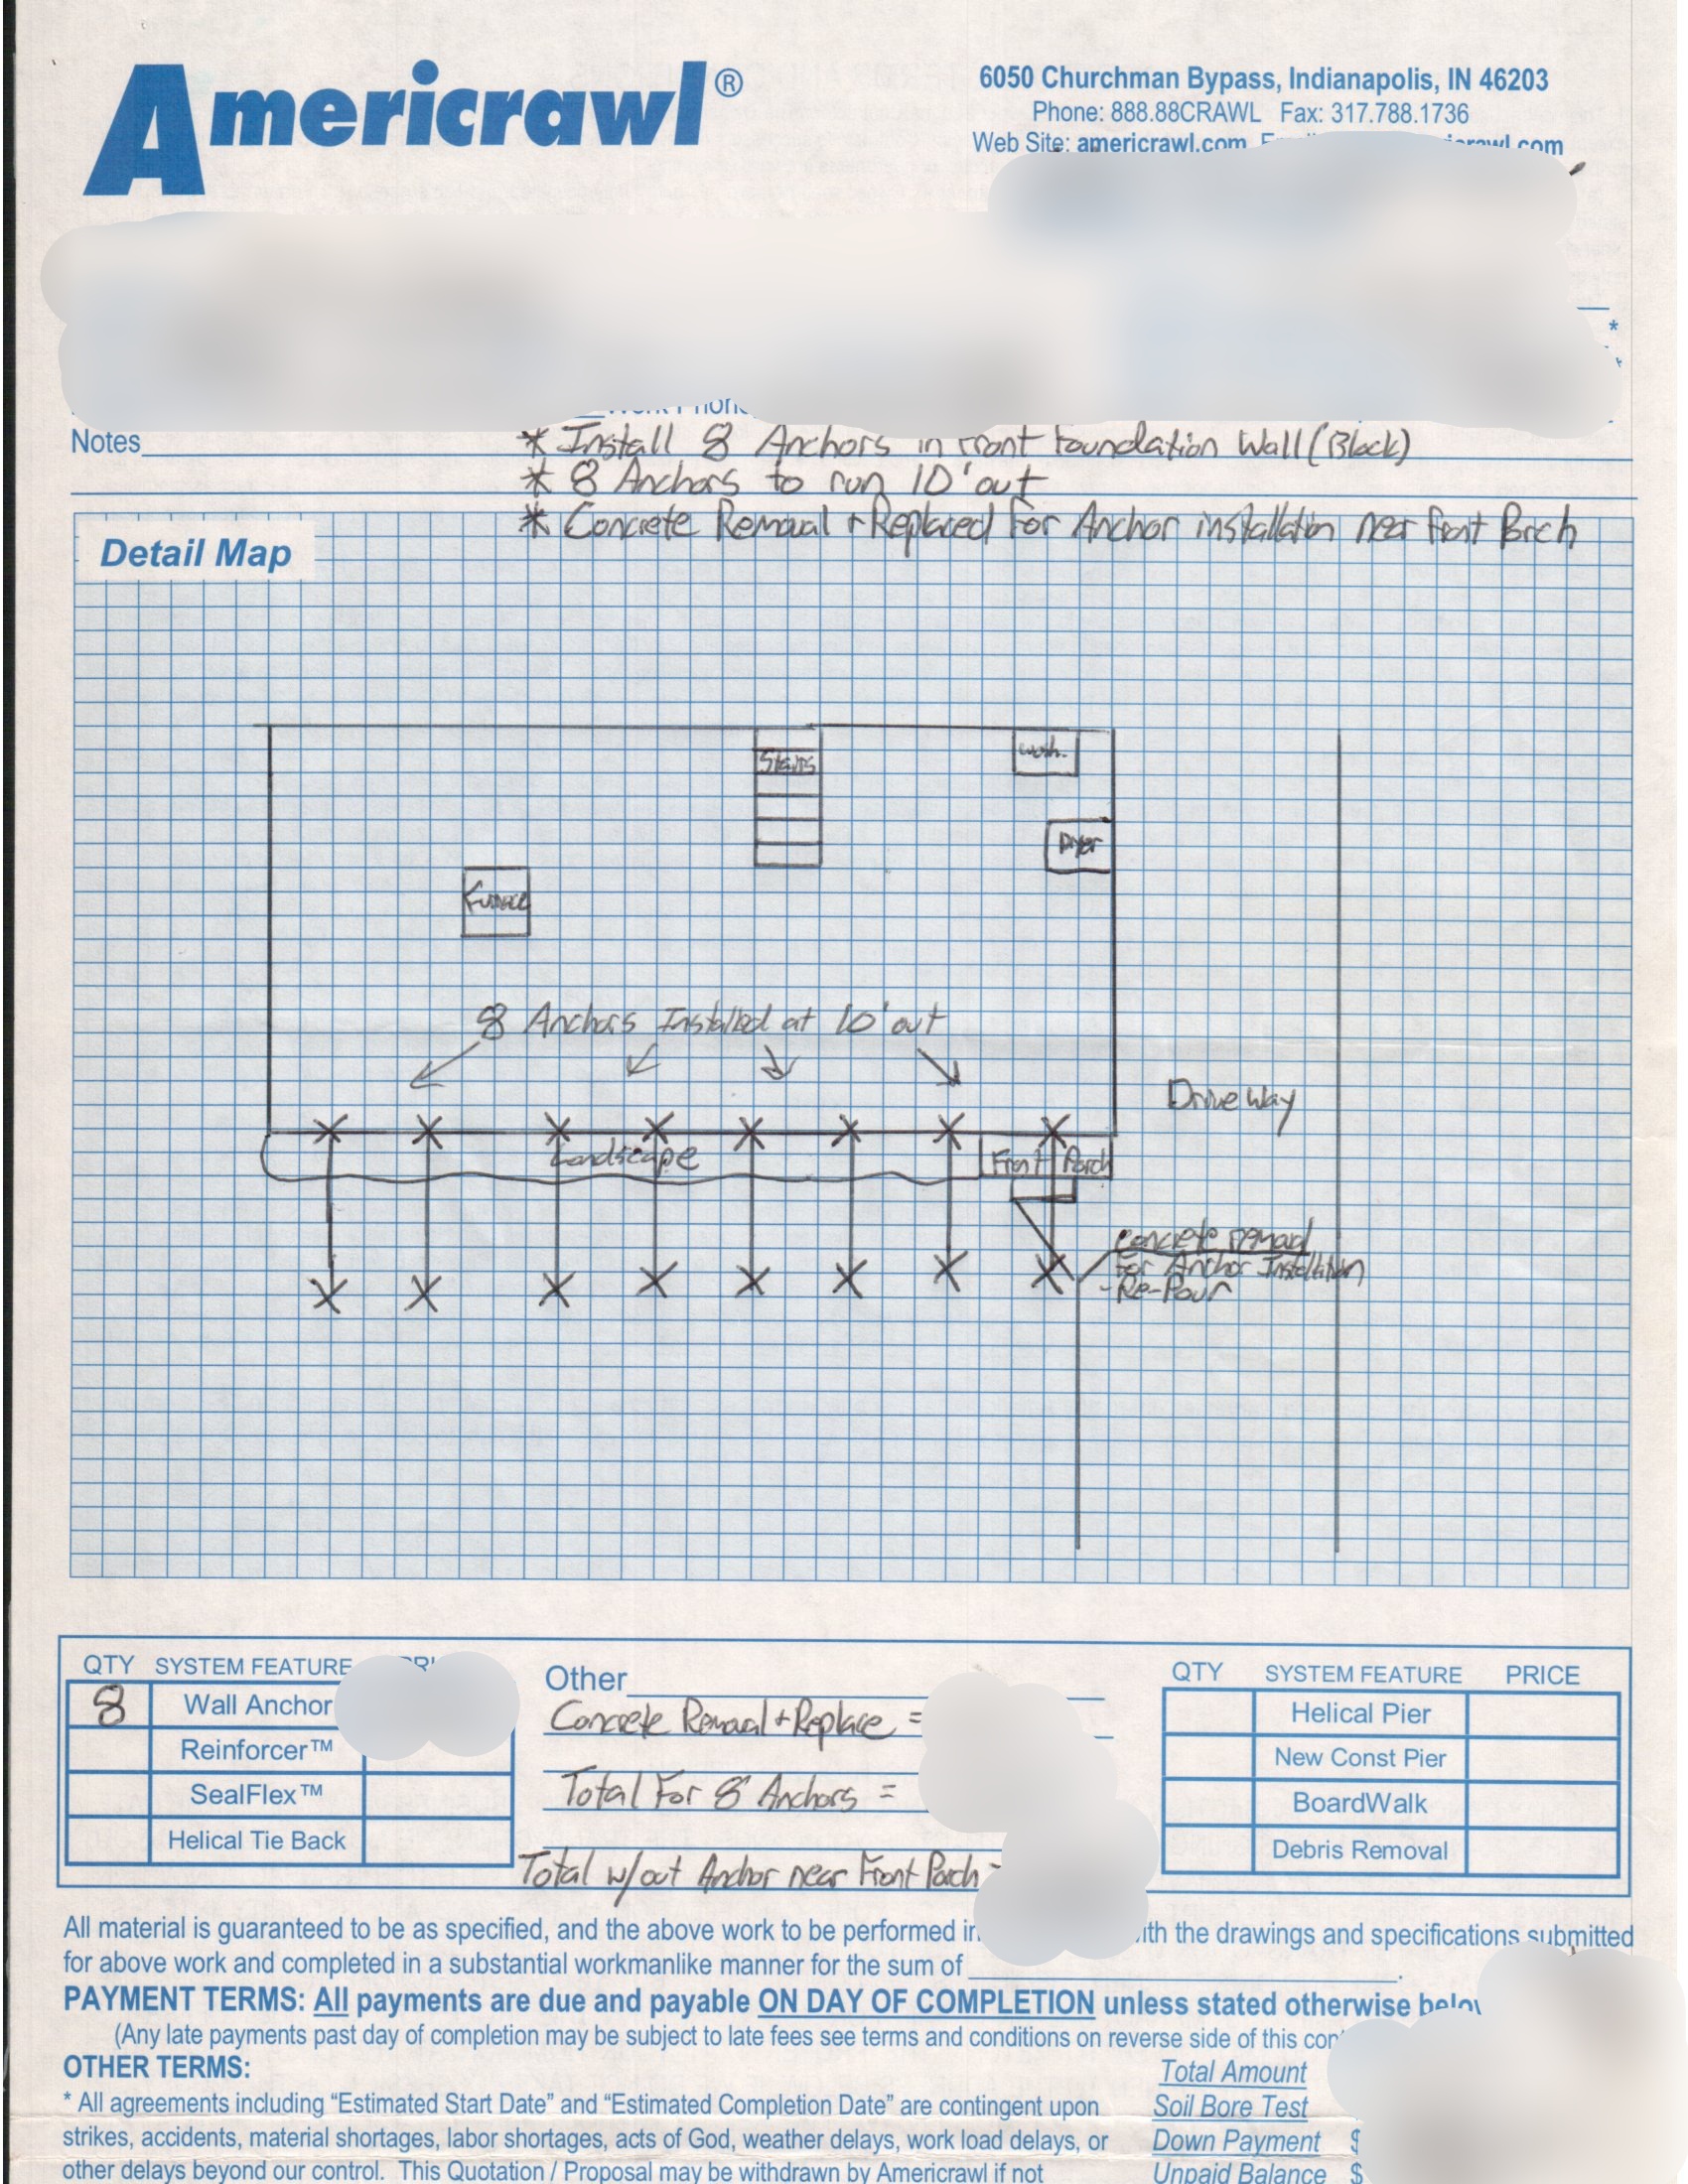 Americrawl®
6050 Churchman Bypass, Indianapolis, IN 46203
Phone: 888.88CRAWL Fax: 317.788.1736
Web Site: americrawl.com
Notes
* Install 8 Anchors in Front Foundation Wall (Block)
* 8 Anchors to run 10' out
* Concrete Removal + Replaced For Anchor installation near Front Porch
Detail Map
Stairs
Wash.
Dryer
Furnace
8 Anchors Installed at 10' out
Drive Way
Landscape
Front Porch
Concrete removal
For Anchor Installation
- Re-Pour
QTY SYSTEM FEATURE
8 Wall Anchor
Reinforcer™
SealFlex™
Helical Tie Back
Other
Concrete Removal + Replace =
Total For 8 Anchors =
Total w/out Anchor near Front Porch -
QTY SYSTEM FEATURE PRICE
Helical Pier
New Const Pier
BoardWalk
Debris Removal
All material is guaranteed to be as specified, and the above work to be performed in the drawings and specifications submitted
for above work and completed in a substantial workmanlike manner for the sum of .
PAYMENT TERMS: All payments are due and payable ON DAY OF COMPLETION unless stated otherwise below
(Any late payments past day of completion may be subject to late fees see terms and conditions on reverse side of this
OTHER TERMS:
* All agreements including “Estimated Start Date” and “Estimated Completion Date” are contingent upon
strikes, accidents, material shortages, labor shortages, acts of God, weather delays, work load delays, or
other delays beyond our control. This Quotation / Proposal may be withdrawn by Americrawl if not
Total Amount
Soil Bore Test
Down Payment $
Unpaid Balance $